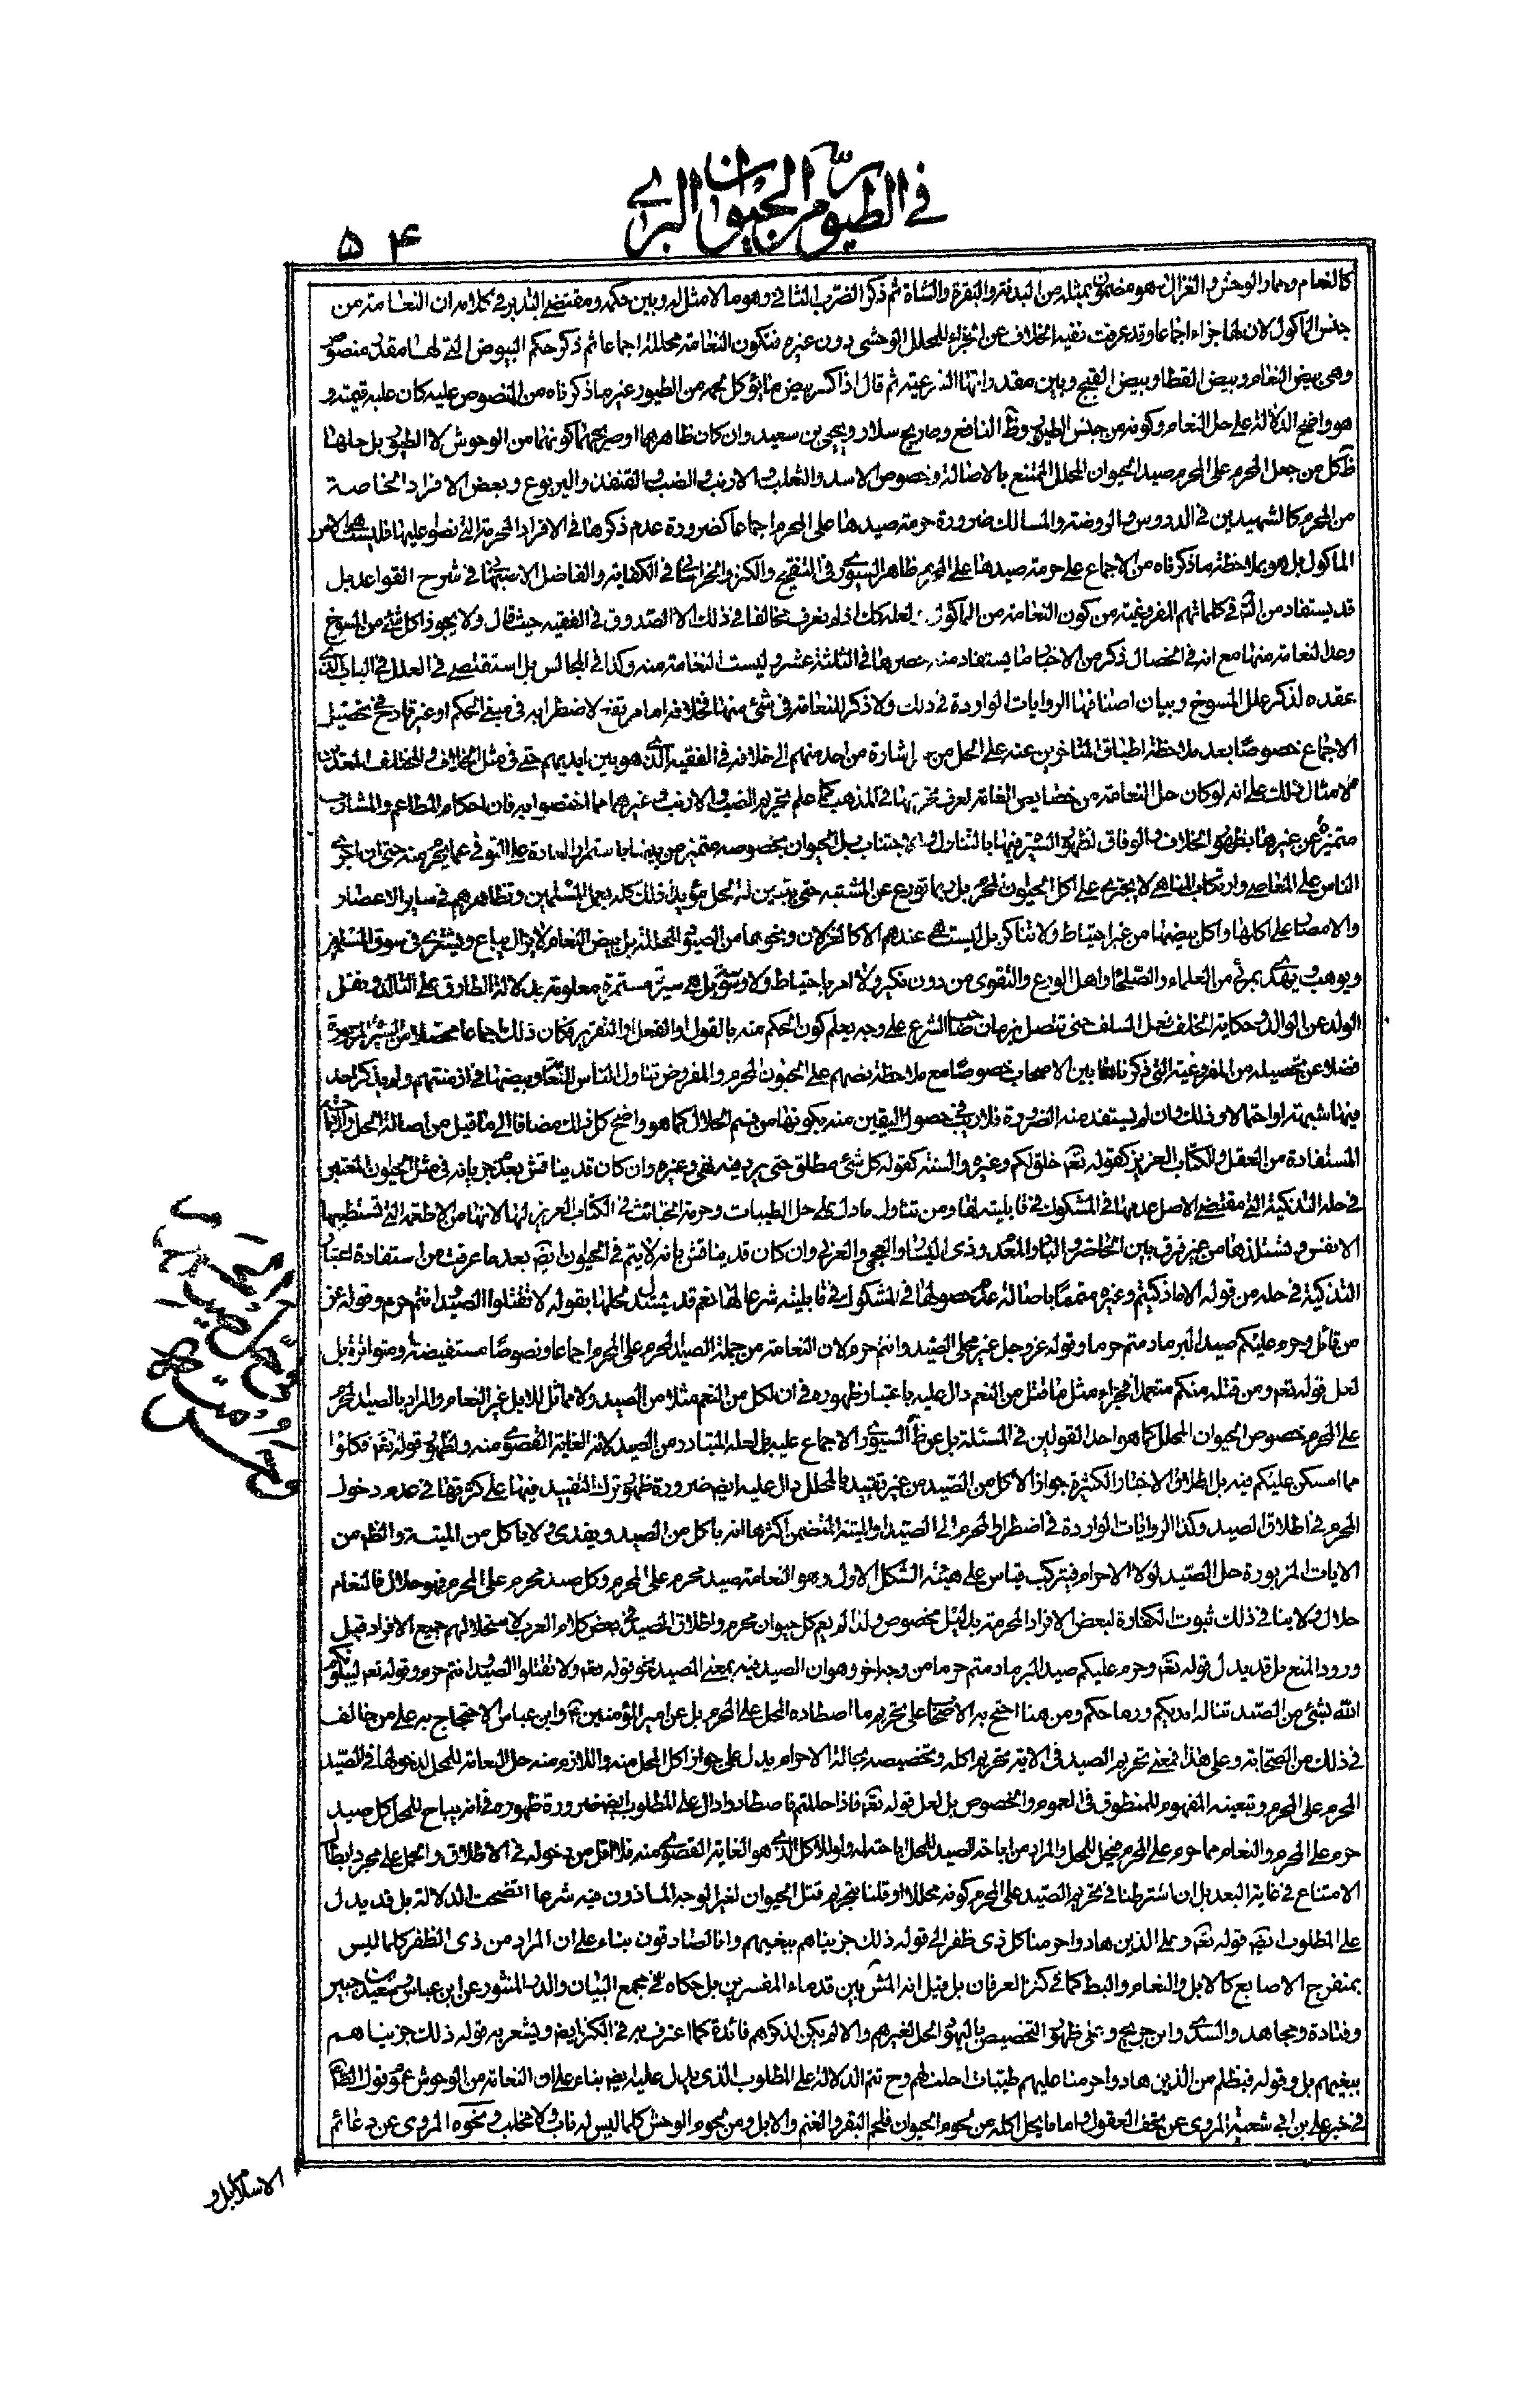 في الطيور من الحيوان البرّي
۵۴
كالنعام وحمار الوحش والغزال هو مضمون بمثله من البدنة والبقرة والشاة ثم ذكر الضرب الثاني وهو ما لا مثل له وبين حكمه ومقتضى التدبر في كلامه ان النعامة من
جنس الماكول لان لها جزاء اجماعا وقد عرفت نفيه الخلاف عن الجزاء للمحلل الوحشى دون غيره فتكون النعامة محللة اجماعا ثم ذكر حكم البيوض التي لها مقدر منصوص
وهى بيض النعام وبيض القطا وبيض القبج وبين مقدراتها الشرعية ثم قال اذا كسر بيض ما يؤكل لحمه من الطيور غير ما ذكرناه من النصوص عليه كان عليه قيمته و
هو واضح الدلالة على حل النعام وكونه من جنس الطيور وظ النافع وصاريح سلار ويحيى بن سعيد وان كان ظاهرهما او صريحهما كونها من الوحوش لا الطيور بل حلها
ظ كل من جعل المحرم على المحرم صيد الحيوان المحلل الممتنع بالاصالة وخصوص الاسد والثعلب والارنب والضب والقنفذ واليربوع وبعض الافراد الخاصة
من المحرم كالشهيدين في الدروس والروضة والمسالك ضرورة حرمة صيدها على المحرم اجماعا كضرورة عدم ذكرها في الافراد المحرمة التي نصوا عليها فليست هى الا من
الماكول بل هو بملاحظة ما ذكرناه من الاجماع على حرمة صيدها على المحرم ظاهر السيورى في التنقيح والكنز والخراسانى في الكفاية والفاضل الاصبهانى في شرح القواعد بل
قد يستفاد من في كلماتهم المفروغية من كون النعامة من الماكول ولعله كك اذ لم نعرف مخالفا في ذلك الا الصدوق في الفقيه حيث قال ولا يجوز اكل شئ من المسوخ
وعد النعامة منها مع انه في الخصال ذكر من الاخبار ما يستفاد منه حصرها في الثلثة عشر وليست النعامة منه وكذا في المجالس بل استقصى في العلل في الباب الذى
عقده لذكر علل المسوخ وبيان اصنافها الروايات الواردة في ذلك ولا ذكر للنعامة في شئ منها فخلافه اما مرتفع لاضطرابه في مبنى الحكم او غير قادح في تحصيل
الاجماع خصوصا بعد ملاحظة اطباق المتاخرين عنه على الحل من اشارة من احد منهم الى خلافه في الفقيه الذى هو بين ايديهم حتى في مثل الخلاف والمختلف المعدين
لامثال ذلك على انه لو كان حل النعامة من خصايص العامة لعرف تحريمها في المذهب كما علم تحريم الضب والارنب وغيرهما مما اختصوا به فان احكام المطاعم والمشارب
متميزة عن غيرها بظهور الخلاف والوفاق لظهور السيرة فيها بالتناول والاجتناب بل الحيوان بخصوصه متميز من بينها باستمرار العادة على التوقى عما يحرم منه حتى ان اجرى
الناس على المعاصي وارتكاب المناهى لا يجترى على اكل الحيوان المحرم بل ربما تورع عن المشتبه حتى يتبين له الحل مؤيدا ذلك كله بعمل المسلمين وتظاهرهم في ساير الاعصار
والامصار على اكلها واكل بيضها من غير احتياط ولا تناكر بل ليست هى عندهم الا كالغزلان ونحوها من الصيود المحللة بل بيض النعام لا يزال يباع ويشترى في سوق المسلمين
ويوهب ويهدى بمرئ من العلماء والصلحاء واهل الورع والتقوى من دون نكير ولا امر باحتياط ولا وتوقى بل هى سيرة مستمرة معلومة بدلالة الطارق على التالد ونقل
الولد عن الوالد وحكاية الخلف عمل السلف حتى تتصل بزمان صاحب الشرع على وجه يعلم كون الحكم منه بالقول او الفعل او التقرير فكان ذلك اجماعا محصلا من السيرة المزبورة
فضلا عن تحصيله من المفروغية التي ذكرناها بين الاصحاب خصوصا مع ملاحظة نصهم على الحيوان المحرم والمفروض تناول الناس النعام وبيضها في ازمنتهم ولم يذكر احد
فيها شبهة او احتمالا وذلك وان لم يستفد منه الضرورة فلا ريب في حصول اليقين منه بكونها من قسم الحلال كما هو واضح كل ذلك مضافا الى ما قيل من اصالة الحل والاباحة
المستفادة من العقل والكتاب العزيز كقوله تعالى خلق لكم وغيره والسنة كقوله كل شئ مطلق حتى يرد فيه نهى وغيره وان كان قد يناقش بعدم جريانه في مثل الحيوان المعتبر
في حله التذكية التي مقتضى الاصل عدمها في المشكوك في قابليته لها ومن تناول مادل على حل الطيبات وحرمة الخبائث في الكتاب العزيز لها لانها من الاطعمة التي تستطيبها
الانفس وتستلذها من غير فرق بين الحاضر والبادى والمعسر وذى اليسار والعجمى والعربى وان كان قد يناقش بانه لا يتم في الحيوان ايضا بعد ما عرفت من استفادة اعتبار
التذكية في حله من قوله الا ما ذكيتم وغيره متمما باصالة عدم حصولها في المشكوك في قابليته شرعا لها نعم قد يستدل لحلها بقوله لا تقتلوا الصيد وانتم حرم وقوله عز
من قائل وحرم عليكم صيد البر ما دمتم حرما وقوله عز وجل غير محلى الصيد وانتم حرم لان النعامة من جملة الصيد المحرم على المحرم اجماعا ونصوصا مستفيضة ومتواترة بل
لعل قوله تعالى ومن قتله منكم متعمدا فجزاء مثل ما قتل من النعم دال عليه باعتبار ظهوره في ان لكل من النعم مثلا من الصيد ولا مماثل للابل غير النعام والمراد بالصيد المحرم
على المحرم خصوص الحيوان المحلل كما هو احد القولين في المسئلة بل عن ظ السيورى الاجماع عليه بل لعله المتبادر من الصيد لانه الغاية القصوى منه ولظهور قوله تعالى فكلوا
مما امسكن عليكم فيه بل اطلاق الاخبار الكثيرة جواز الاكل من الصيد من غير تقييد بالمحلل دال عليه ايضا ضرورة ظهور ترك التقييد فيها على كثرتها في عدم دخول
المحرم في اطلاق الصيد وكذا الروايات الواردة في اضطرار المحرم الى الصيد او الميتة المتضمن اكثرها انه ياكل من الصيد ويفدى ولا ياكل من الميتة والظم من
الايات المزبورة حل الصيد لولا الاحرام فيتركب قياس على هيئة الشكل الاول وهو النعامة صيد محرم على المحرم وكل صيد محرم على المحرم فهو حلال فالنعام
حلال ولا ينافى ذلك ثبوت الكفارة لبعض الافراد المحرمة بدليل مخصوص ولذا لم يعم كل حيوان محرم واطلاق الصيد في بعض كلام العرب لاستحلالهم جميع الافراد قبل
ورود المنع بل قد يدل قوله تعالى وحرم عليكم صيد البر ما دمتم حرما من وجه اخر وهو ان الصيد فيه بمعنى المصيد نحو قوله تعالى ولا تقتلوا الصيد وانتم حرم وقوله تعالى ليبلونكم
الله بشئ من الصيد تناله ايديكم ورماحكم ومن هنا احتج به الاصحاب على تحريم ما اصطاده المحل على المحرم بل عن امير المؤمنين ع وابن عباس الاحتجاج به على من خالف
في ذلك من الصحابة وعلى هذا فمعنى تحريم الصيد في الاية تحريم اكله وتخصيصه بحالة الاحرام يدل على جواز اكل المحل منه واللازم منه حل النعامة للمحل لدخولها في الصيد
المحرم على المحرم وتبعيته المفهوم للمنطوق في العموم والخصوص بل لعل قوله تعالى فاذا حللتم فاصطادوا دال على المطلوب ايضا ضرورة ظهوره في انه يباح للمحل كل صيد
حرم على المحرم والنعام مما حرم على المحرم فيحل للمحل والمراد من اباحة الصيد للمحل اباحته له ولو للاكل الذى هو الغاية القصوى منه فلا اقل من دخوله في الاطلاق والحمل على مجرد ابطال
الامتناع في غاية البعد بل ان اشترطنا في تحريم الصيد على المحرم كونه محللا او قلنا بتحريم قتل الحيوان لغير الوجه الماذون فيه شرعا اتضحت الدلالة بل قد يدل
على المطلوب ايضا قوله تعالى وعلى الذين هادوا حرمنا كل ذى ظفر الى قوله ذلك جزيناهم ببغيهم وانا لصادقون بناء على ان المراد من ذى الظفر كلما ليس
بمنفرج الاصابع كالابل والنعام والبط كما في كنز العرفان بل قيل انه المش بين قدماء المفسرين بل حكاه في مجمع البيان والدر المنثور عن ابن عباس وسعيد بن جبير
وقتادة ومجاهد والسدى وابن جريج وعلى ظهور التخصيص باليهود الحل لغيرهم والا لم يكن لذكرهم فائدة كما اعترف به في الكنز ايضا ويشعر به قوله ذلك جزيناهم
ببغيهم بل وقوله فبظلم من الذين هادوا حرمنا عليهم طيبات احلت لهم وح تتم الدلالة على المطلوب الذى يدل عليه ايضا بناء على ان النعامة من الوحوش عموم قول الصادق
في خبر على بن ابى شعبة المروى عن تحف العقول واما ما يحل اكله من لحوم الحيوان فلحم البقر والغنم والابل ومن لحوم الوحش كلما ليس له ناب ولا مخلب ونحوه المروى عن دعائم
الاسلام بل و